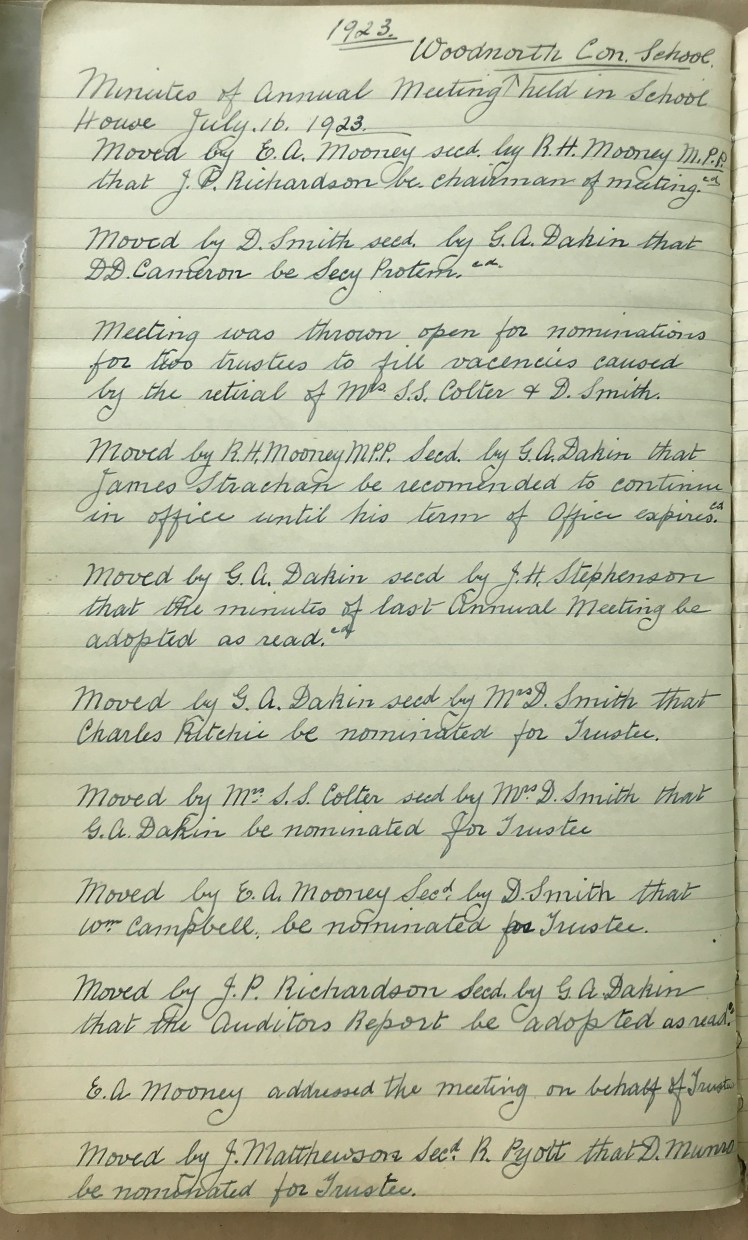 1923.
Woodnorth Con. School.
Minutes of Annual Meeting ^ held in School
House July. 16. 1923.
Moved by E. A. Mooney secd. by R. H. Mooney M.P.P.
that J. P. Richardson be chairman of meeting. cd
Moved by D. Smith secd. by G. A. Dakin that
D D. Cameron be Secy Protem. cd.
Meeting was thrown open for nominations
for two trustees to fill vacencies caused
by the retiral of Mrs S.S. Colter & D. Smith.
Moved by R. H. Mooney M.P.P. Secd. by G. A. Dakin that
James Strachan be recomended to continue
in office until his term of Office expires. cd
Moved by G. A. Dakin secd by J. H. Stephenson
that the minutes of last Annual Meeting be
adopted as read. cd
Moved by G. A. Dakin secd by Mrs D. Smith that
Charles Ritchie be nominated for Trustee.
Moved by Mrs. S. S. Colter secd by Mrs. D. Smith that
G. A. Dakin be nominated for Trustee
Moved by E. A. Mooney Secd. by D. Smith that
Wm Campbell. be nominated for Trustee.
Moved by J. P. Richardson Secd. by G A. Dakin
that the Auditors Report be adopted as read. cd
E. A Mooney addressed the meeting on behalf of Trustee
Moved by J. Matthewson Secd. R. Pyott that D. Munro
be nominated for Trustee.